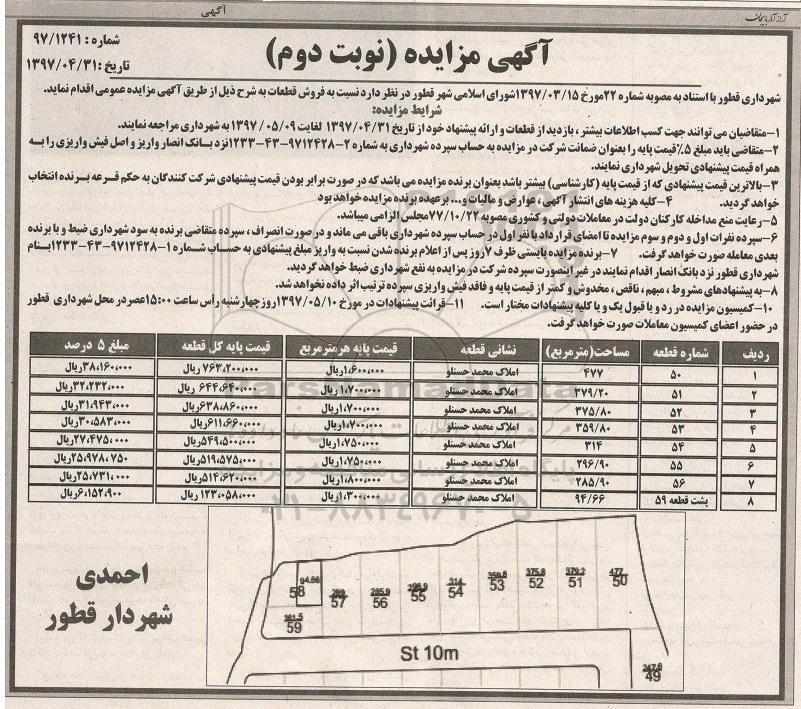 آراز آذربایجان
آگهی
آگهی مزایده (نوبت دوم)
شماره : ۹۷/۱۲۴۱
تاریخ :۱۳۹۷/۰۴/۳۱
شهرداری قطور با استناد به مصوبه شماره ۲۲مورخ ۱۳۹۷/۰۳/۱۵شورای اسلامی شهر قطور در نظر دارد نسبت به فروش قطعات به شرح ذیل از طریق آگهی مزایده عمومی اقدام نماید.
شرایط مزایده:
۱-متقاضیان می توانند جهت کسب اطلاعات بیشتر ، بازدید از قطعات و ارائه پیشنهاد خود از تاریخ ۱۳۹۷/۰۴/۳۱ لغایت ۱۳۹۷/۰۵/۰۹ به شهرداری مراجعه نمایند.
۲-متقاضی باید مبلغ ۵٪قیمت پایه را بعنوان ضمانت شرکت در مزایده به حساب سپرده شهرداری به شماره ۲-۹۷۱۲۴۲۸-۴۳-۱۲۳۳نزد بانک انصار واریز و اصل فیش واریزی را به
همراه قیمت پیشنهادی تحویل شهرداری نمایند.
۳-بالاترین قیمت پیشنهادی که از قیمت پایه (کارشناسی) بیشتر باشد بعنوان برنده مزایده می باشد که در صورت برابر بودن قیمت پیشنهادی شرکت کنندگان به حکم قرعه برنده انتخاب
خواهد گردید. ۴-کلیه هزینه های انتشار آگهی ، عوارض و مالیات و... برعهده برنده مزایده خواهد بود
۵-رعایت منع مداخله کارکنان دولت در معاملات دولتی و کشوری مصوبه ۷۷/۱۰/۲۲مجلس الزامی میباشد.
۶-سپرده نفرات اول و دوم و سوم مزایده تا امضای قرارداد با نفر اول در حساب سپرده شهرداری باقی می ماند و در صورت انصراف ، سپرده متقاضی برنده به سود شهرداری ضبط و با برنده
بعدی معامله صورت خواهد گرفت. ۷-برنده مزایده بایستی ظرف ۷روز پس از اعلام برنده شدن نسبت به واریز مبلغ پیشنهادی به حساب شماره ۱-۹۷۱۲۴۲۸-۴۳-۱۲۳۳بنام
شهرداری قطور نزد بانک انصار اقدام نمایند در غیر اینصورت سپرده شرکت در مزایده به نفع شهرداری ضبط خواهد گردید.
۸-به پیشنهادهای مشروط ، مبهم ، ناقص ، مخدوش و کمتر از قیمت پایه و فاقد فیش واریزی سپرده ترتیب اثر داده نخواهد شد.
۱۰-کمیسیون مزایده در رد و یا قبول یک و یا کلیه پیشنهادات مختار است. ۱۱-قرائت پیشنهادات در مورخ ۱۳۹۷/۰۵/۱۰روز چهارشنبه رأس ساعت ۱۵:۰۰عصر در محل شهرداری قطور
در حضور اعضای کمیسیون معاملات صورت خواهد گرفت.
ردیف شماره قطعه مساحت(مترمربع) نشانی قطعه قیمت پایه هر مترمربع قیمت پایه کل قطعه مبلغ ۵ درصد
۱ ۵۰ ۴۷۷ املاک محمد حسنلو ۱،۶۰۰،۰۰۰ریال ۷۶۳،۲۰۰،۰۰۰ریال ۳۸،۱۶۰،۰۰۰ریال
۲ ۵۱ ۳۷۹/۲۰ املاک محمد حسنلو ۱،۷۰۰،۰۰۰ریال ۶۴۴،۶۴۰،۰۰۰ریال ۳۲،۲۳۲،۰۰۰ریال
۳ ۵۲ ۳۷۵/۸۰ املاک محمد حسنلو ۱،۷۰۰،۰۰۰ریال ۶۳۸،۸۶۰،۰۰۰ریال ۳۱،۹۴۳،۰۰۰ریال
۴ ۵۳ ۳۵۹/۸۰ املاک محمد حسنلو ۱،۷۰۰،۰۰۰ریال ۶۱۱،۶۶۰،۰۰۰ریال ۳۰،۵۸۳،۰۰۰ریال
۵ ۵۴ ۳۱۴ املاک محمد حسنلو ۱،۷۵۰،۰۰۰ریال ۵۴۹،۵۰۰،۰۰۰ریال ۲۷،۴۷۵،۰۰۰ریال
۶ ۵۵ ۲۹۶/۹۰ املاک محمد حسنلو ۱،۷۵۰،۰۰۰ریال ۵۱۹،۵۷۵،۰۰۰ریال ۲۵،۹۷۸،۷۵۰ریال
۷ ۵۶ ۲۸۵/۹۰ املاک محمد حسنلو ۱،۸۰۰،۰۰۰ریال ۵۱۴،۶۲۰،۰۰۰ریال ۲۵،۷۳۱،۰۰۰ریال
۸ پشت قطعه ۵۹ ۹۴/۶۶ املاک محمد حسنلو ۱،۳۰۰،۰۰۰ریال ۱۲۳،۰۵۸،۰۰۰ریال ۶،۱۵۲،۹۰۰ریال
احمدی
شهردار قطور
94.66 285.9 296.9 314 359.8 375.8 379.2 477
58 57 56 55 54 53 52 51 50
59
St 10m
247.6
49